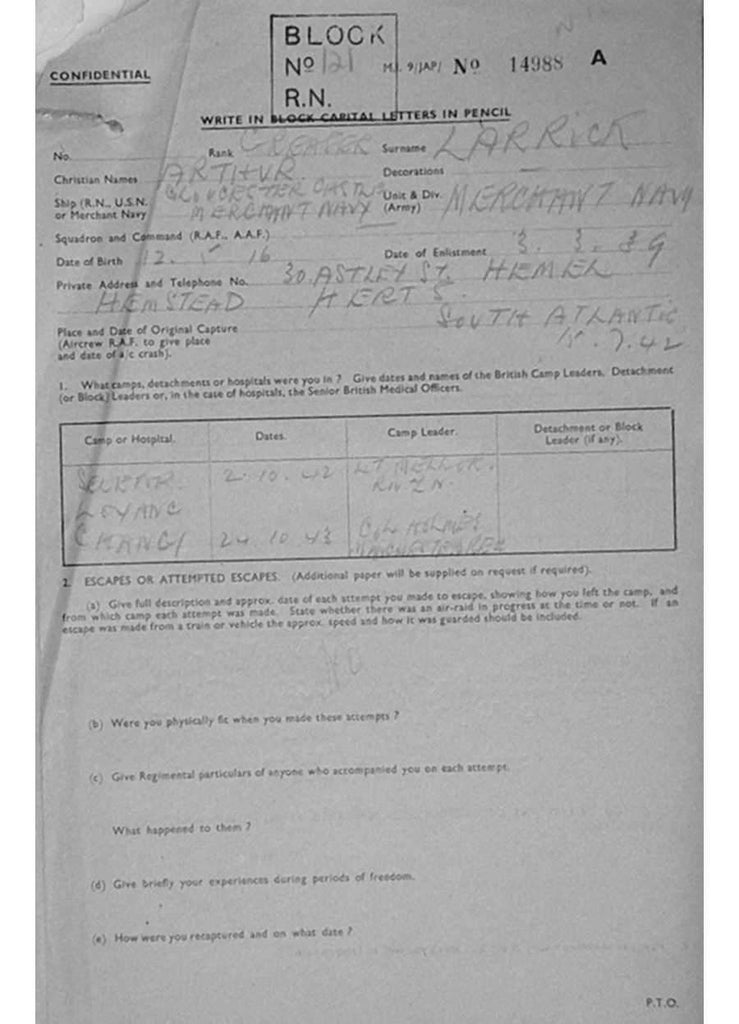 BLOCK
Nº 121
R.N.
CONFIDENTIAL
M.I. 9/JAP/ Nº 14988 A
WRITE IN BLOCK CAPITAL LETTERS IN PENCIL
No. Rank GREASER Surname LARRICK
Christian Names ARTHUR. Decorations —
Ship (R.N., U.S.N. or Merchant Navy GLOUCESTER CASTLE MERCHANT NAVY Unit & Div. (Army) MERCHANT NAVY
Squadron and Command (R.A.F., A.A.F.)
Date of Birth 12. 5 16 Date of Enlistment 3. 3. 39
Private Address and Telephone No. 30 ASTLEY ST. HEMEL
HEMSTEAD HERTS.
Place and Date of Original Capture SOUTH ATLANTIC
(Aircrew R.A.F. to give place 15.7.42
and date of a/c crash).
1. What camps, detachments or hospitals were you in ? Give dates and names of the British Camp Leaders, Detachment
(or Block) Leaders or, in the case of hospitals, the Senior British Medical Officers.
Camp or Hospital. Dates. Camp Leader. Detachment or Block Leader (if any).
2.10.42 LT
LOYANG
CHANGI 24 10 43 COL HOLMES
2. ESCAPES OR ATTEMPTED ESCAPES. (Additional paper will be supplied on request if required).
(a) Give full description and approx. date of each attempt you made to escape, showing how you left the camp, and
from which camp each attempt was made. State whether there was an air-raid in progress at the time or not. If an
escape was made from a train or vehicle the approx. speed and how it was guarded should be included.
NO
(b) Were you physically fit when you made these attempts ?
(c) Give Regimental particulars of anyone who accompanied you on each attempt.
What happened to them ?
(d) Give briefly your experiences during periods of freedom.
(e) How were you recaptured and on what date ?
P.T.O.